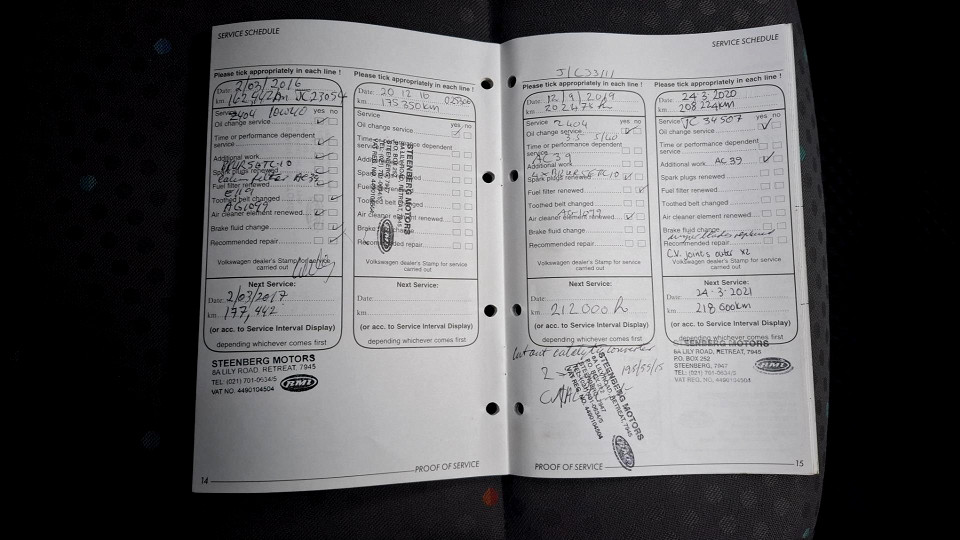 SERVICE SCHEDULE
Please tick appropriately in each line !
Date: 2/03/2016
km 162442km JC23054
Service 2404 10w40 yes no
Oil change service
Time or performance dependent
service
Additional work
Spark plugs renewed
Fuel filter renewed
E119
Toothed belt changed
AG1099
Air cleaner element renewed
Brake fluid change
Recommended repair
Volkswagen dealer's Stamp for service
carried out
Next Service:
Date: 2/03/2017
km 177,442
(or acc. to Service Interval Display)
depending whichever comes first
STEENBERG MOTORS
8A LILY ROAD, RETREAT, 7945
TEL: (021) 701-0634/5
VAT NO. 4490104504
RMI
14
PROOF OF SERVICE
Please tick appropriately in each line !
Date: 20 12 16
km 175 350km
Service yes no
Oil change service
Time or performance dependent
service
Additional
Spark
Fuel
Toothed
Air cleaner element renewed
Brake
Recommended repair
STEENBERG MOTORS
8A LILY ROAD, RETREAT, 7945
P.O. BOX 252
STEENBERG, 7947
TEL: (021) 701-0634/5
VAT REG. NO. 4490104504
RMI
Volkswagen dealer's Stamp for service
carried out
Next Service:
Date:
km
(or acc. to Service Interval Display)
depending whichever comes first
SERVICE SCHEDULE
Please tick appropriately in each line !
Date: 12/9/2019
km 202478k
Service 2404 yes no
Oil change service
3.5 5/40
Time or performance dependent
service
AC39
Additional work
Spark plugs renewed
Fuel filter renewed
Toothed belt changed
AG1099
Air cleaner element renewed
Brake fluid change
Recommended repair
Volkswagen dealer's Stamp for service
carried out
Next Service:
Date:
km 212000k
(or acc. to Service Interval Display)
depending whichever comes first
cut out catalytic converter
2 195/55/15
STEENBERG MOTORS
8A LILY ROAD, RETREAT, 7945
P.O. BOX 252
STEENBERG, 7947
VAT REG. NO. 4490104504
RMI
PROOF OF SERVICE
Please tick appropriately in each line !
Date: 24.3.2020
km 208 224km
Service JC 34507 yes no
Oil change service
Time or performance dependent
service
Additional work AC 39
Spark plugs renewed
Fuel filter renewed
Toothed belt changed
Air cleaner element renewed
Brake fluid change
Recommended repair
C.V. joints outer x2
Volkswagen dealer's Stamp for service
carried out
Next Service:
Date: 24-3-2021
km 218 000km
(or acc. to Service Interval Display)
depending whichever comes first
STEENBERG MOTORS
8A LILY ROAD, RETREAT, 7945
P.O. BOX 252
STEENBERG, 7947
TEL: (021) 701-0634/5
VAT REG. NO. 4490104504
RMI
15